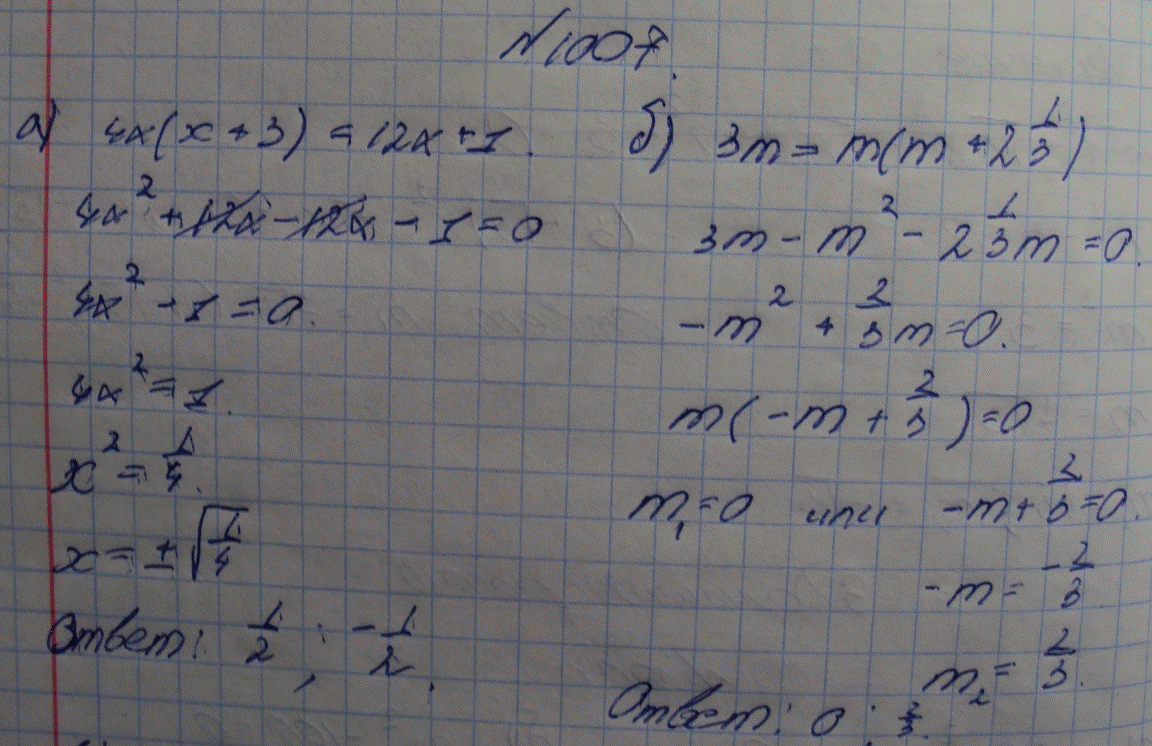 №1007.
а) 4x(x + 3) = 12x + 1.
4x² + 12x - 12x - 1 = 0
4x² - 1 = 0.
4x² = 1.
x² = 1/4.
x = ±√1/4
Ответ: 1/2 ; -1/2.
б) 3m = m(m + 2 1/3)
3m - m² - 2 1/3 m = 0.
-m² + 2/3 m = 0.
m(-m + 2/3) = 0
m₁ = 0 или -m + 2/3 = 0.
-m = -2/3
m₂ = 2/3.
Ответ: 0 ; 2/3.